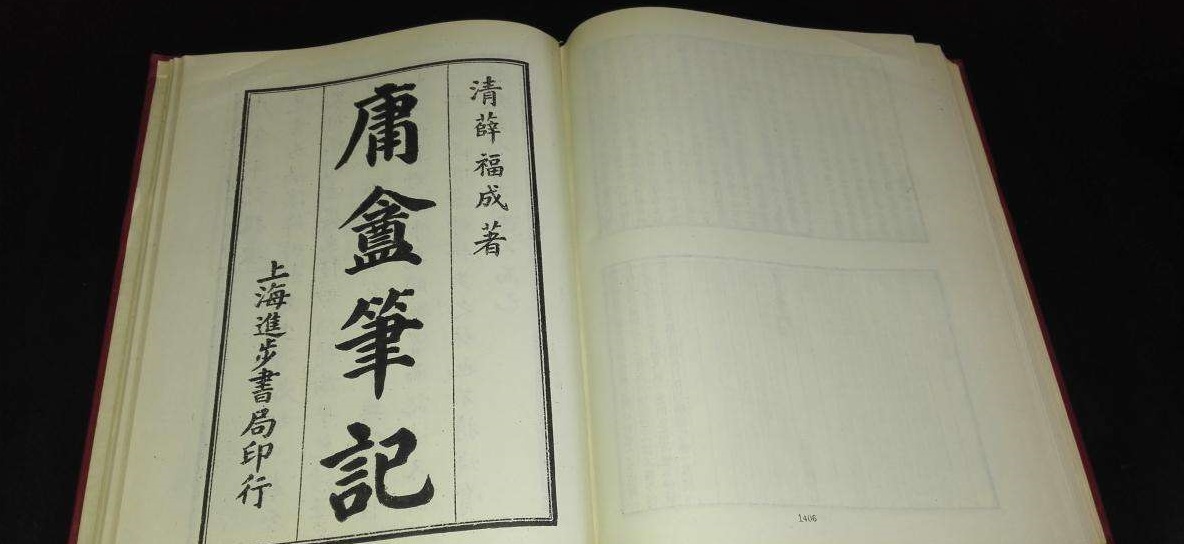 清薛福成著
庸盦筆記
上海進步書局印行
1406